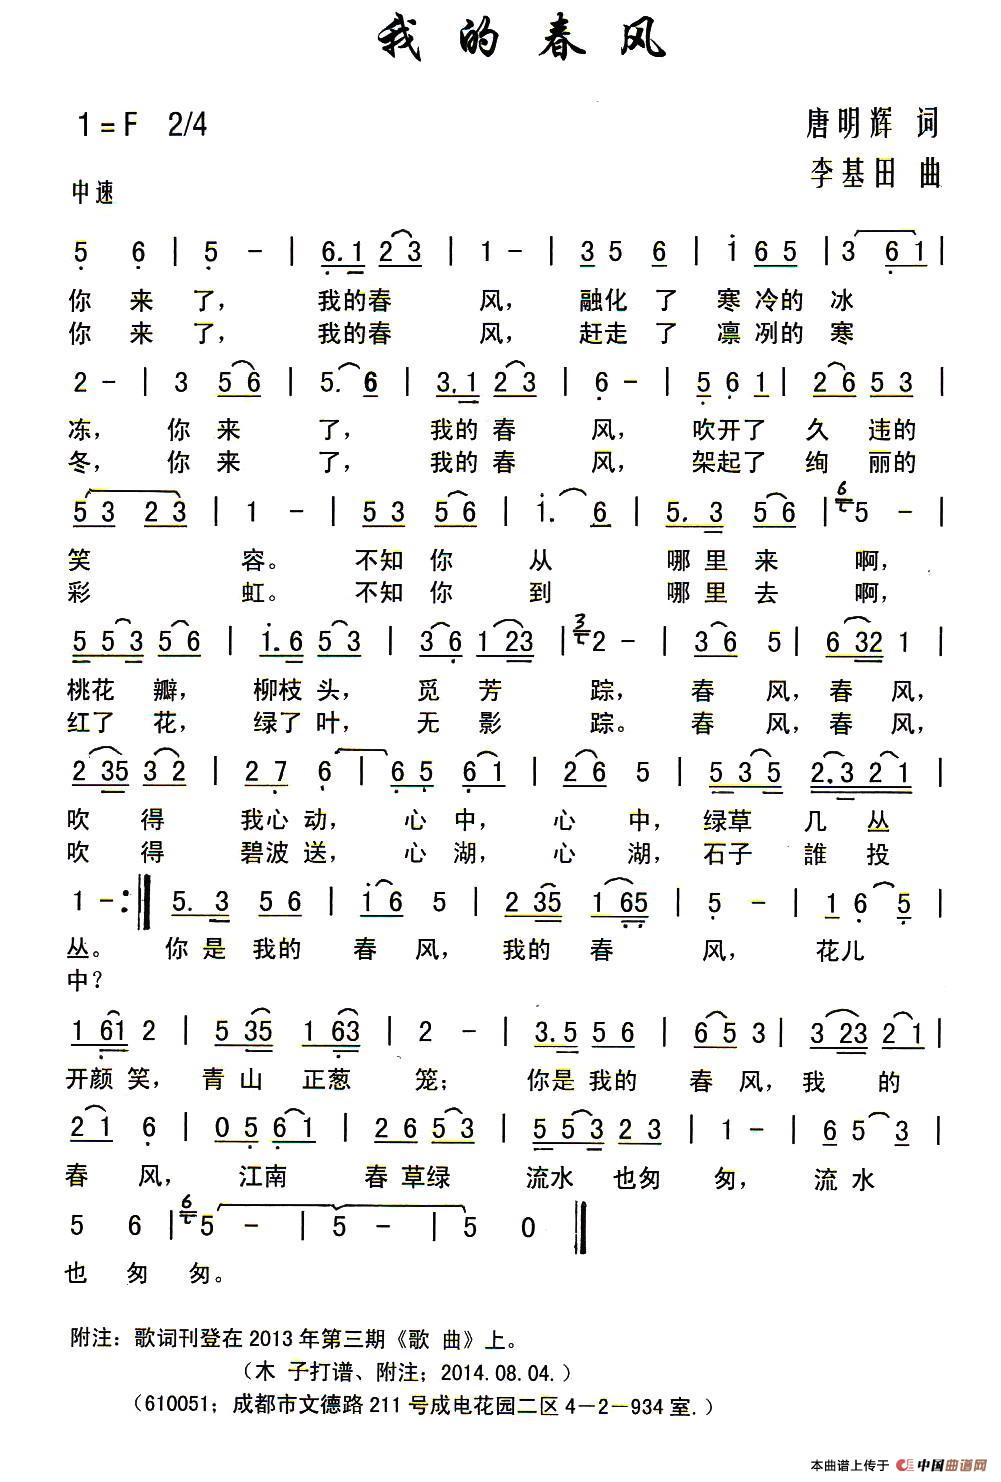 我的春风
1=F 2/4
唐明辉 词
李基田 曲
中速
5 6 | 5 - | 6.1 2 3 | 1 - | 3 5 6 | 1 6 5 | 3 6 1 |
你 来 了， 我的春 风， 融化 了 寒 冷的 冰
你 来 了， 我的春 风， 赶走 了 凛 冽的 寒
2 - | 3 5 6 | 5. 6 | 3.1 2 3 | 6 - | 5 6 1 | 2 6 5 3 |
冻， 你 来 了， 我的 春 风， 吹开了 久 违的
冬， 你 来 了， 我的 春 风， 架起了 绚 丽的
5 3 2 3 | 1 - | 5 3 5 6 | 1. 6 | 5. 3 5 6 | 6 5 - |
笑 容。 不知 你 从 哪 里 来 啊，
彩 虹。 不知 你 到 哪 里 去 啊，
5 5 3 5 6 | 1.6 5 3 | 3 6 1 23 | 3 2 - | 3 6 5 | 6 32 1 |
桃花 瓣， 柳枝 头， 觅 芳 踪， 春 风，春 风，
红了 花， 绿了 叶， 无 影 踪。 春 风，春 风，
2 35 3 2 | 2 7 6 | 6 5 6 1 | 2 6 5 | 5 3 5 2.3 2 1 |
吹 得 我心 动， 心 中， 心 中， 绿草 几 丛
吹 得 碧波 送， 心 湖， 心 湖， 石子 誰 投
1 - :‖ 5. 3 5 6 | 1 6 5 | 2 35 1 65 | 5 - | 1 6 5 |
丛。 你 是 我的 春 风， 我的 春 风， 花儿
中？
1 61 2 | 5 35 1 63 | 2 - | 3.5 5 6 | 6 5 3 | 3 23 2 1 |
开颜 笑， 青 山 正葱 笼； 你是 我的 春 风， 我 的
2 1 6 | 0 5 6 1 | 2 6 5 3 | 5 5 3 2 3 | 1 - | 6 5 3 |
春 风， 江南 春 草绿 流水 也匆 匆， 流 水
5 6 | 6 5 - | 5 - | 5 0 ‖
也 匆 匆。
附注：歌词刊登在2013年第三期《歌 曲》上。
（木 子打谱、附注；2014.08.04.）
（610051；成都市文德路211号成电花园二区4－2－934室.）
本曲谱上传于 中国曲谱网